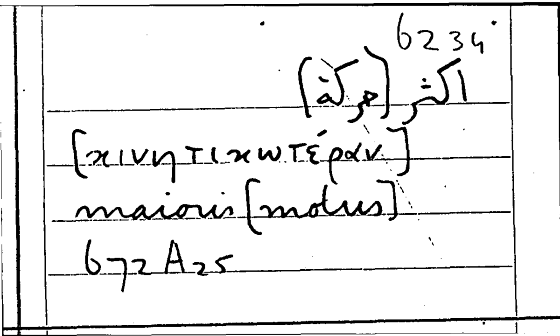 6234
اكثر (حركة)
[κινητικωτέραν]
maioris [motus]
672 A 25